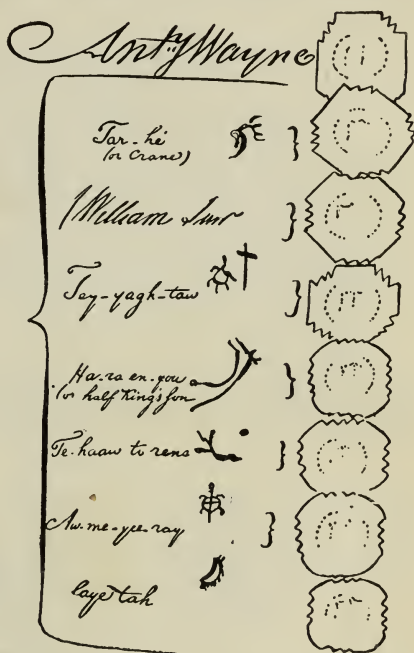 Anty Wayne
Tar-hé
(or Crane)
William Surr
Tey-yagh-taw
Ha-ra-en-you
(or half King's Son
Te-haaw to rens
Aw-me-yee-ray
laye tah